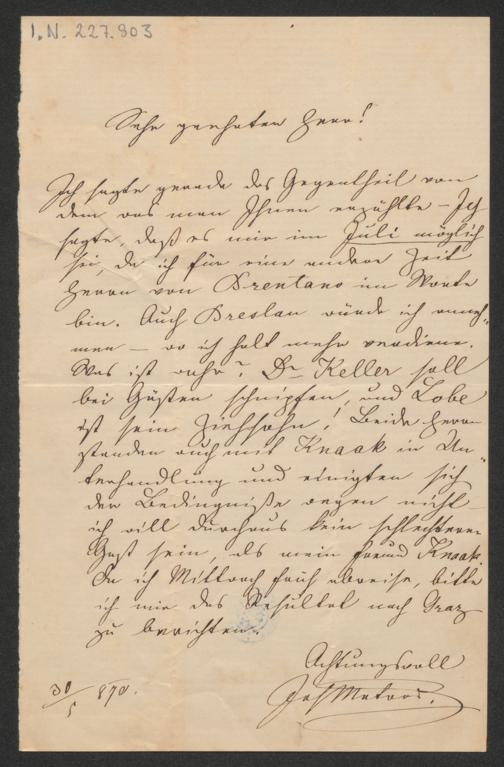 I.N. 227.803
Sehr geehrter Herr!
Ich sagte gerade das Gegentheil von
dem was man Ihnen erzählte – Ich
sagte, daß es mir im Juli möglich
sei, da ich für eine andere Zeit
Herrn von Brentano im Worte
bin. Auch Breslau würde ich anneh-
men – wo ich halt mehr verdiene.
Was ist wahr? Dr Keller soll
bei Gästen schnipfen, und Lobe
ist sein Ziehsohn! Beide Herrn
standen auch mit Knaak in Un-
terhandlung und einigten sich
der Bedingniße wegen nicht –
ich will durchaus kein schlechterer
Gast sein, als mein Freund Knaak.
Da ich Mittwoch früh abreise, bitte
ich mir das Resultat nach Graz
zu berichten.
Achtungsvoll
30/5 870.
Jos Matras.